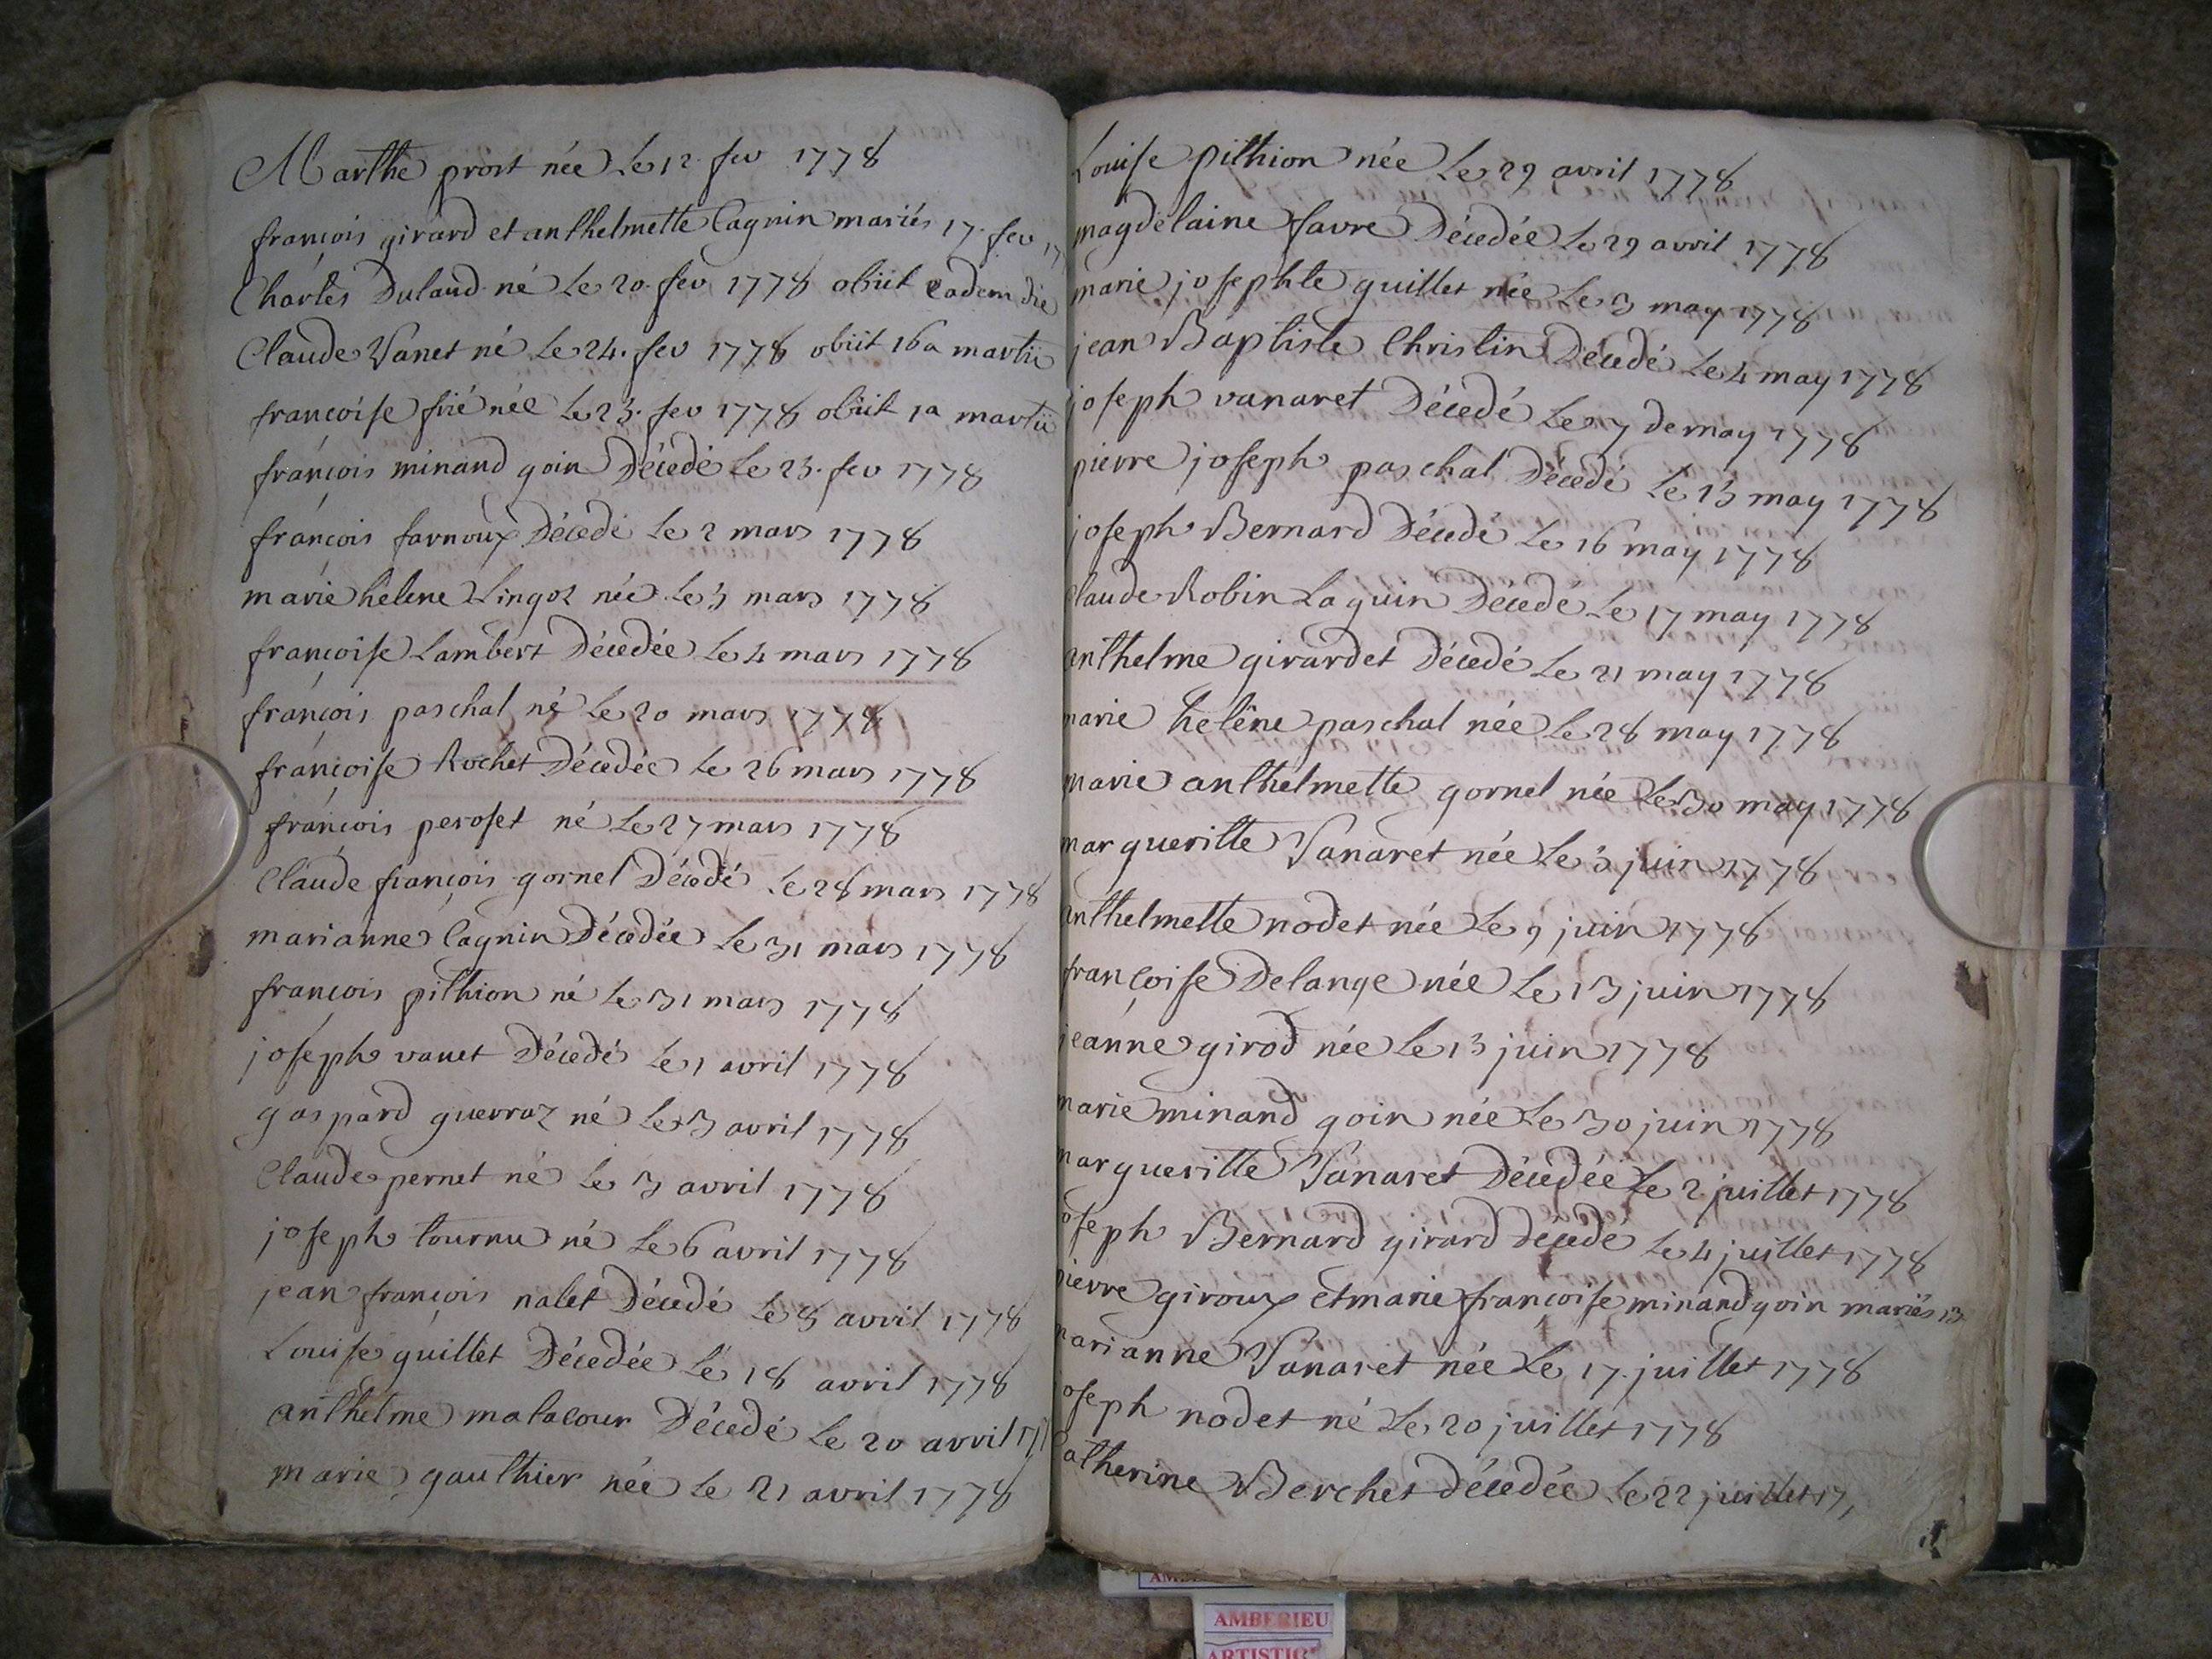 Marthe prost née Le 12. fev 1778
françois girard et anthelmette Cagnin mariés 17. fev 17
Charles Dulaud né Le 20. fev 1778 obiit eadem die
Claude Vanet né Le 24. fev 1778 obiit 16a martii
françoise frié née Le 23. fev 1778 obiit 1a martii
françois minand goin Décedé Le 23. fev 1778
françois farnoux Décedé Le 2 mars 1778
marie helene Lingot née Le 3 mars 1778
françoise Lambert Décedée Le 4 mars 1778
françois paschal né Le 20 mars 1778
françoise Rochet Décedée Le 26 mars 1778
françois peroset né Le 27 mars 1778
Claude françois gornel Décedé Le 28 mars 1778
marianne Cagnin Décedée Le 31 mars 1778
françois pithion né Le 31 mars 1778
joseph vanet Décedé Le 1 avril 1778
gaspard guerraz né Le 3 avril 1778
Claude pernet né Le 3 avril 1778
joseph tournu né Le 6 avril 1778
jean françois nalet Décedé Le 8 avril 1778
Louise guillet Décedée Le 18 avril 1778
anthelme malacour Décedé Le 20 avril 17
marie gauthier née Le 21 avril 1778
Louise pithion née Le 29 avril 1778
magdelaine favre Décedée Le 29 avril 1778
marie josephte guillet née Le 3 may 1778
jean Baptiste Christin Décedé Le 4 may 1778
joseph vanaret Décedé Le 7 de may 1778
pierre joseph paschal Décedé Le 13 may 1778
joseph Bernard Décedé Le 16 may 1778
Claude Robin Laguin Décedé Le 17 may 1778
anthelme girardet Décedé Le 21 may 1778
marie helène paschal née Le 28 may 1778
marie anthelmette gornel née Le 30 may 1778
margueritte Vanaret née Le 3 juin 1778
anthelmette nodet née Le 9 juin 1778
françoise Delange née Le 13 juin 1778
jeanne girod née Le 13 juin 1778
marie minand goin née Le 30 juin 1778
margueritte Vanaret Décedée Le 2 juillet 1778
joseph Bernard girard Décedé Le 4 juillet 1778
pierre giroux et marie françoise minand goin mariés 13
marianne Vanaret née Le 17. juillet 1778
joseph nodet né Le 20 juillet 1778
Catherine Berchet Décedée Le 22 juillet 17
AMBERIEU
ARTISTIC